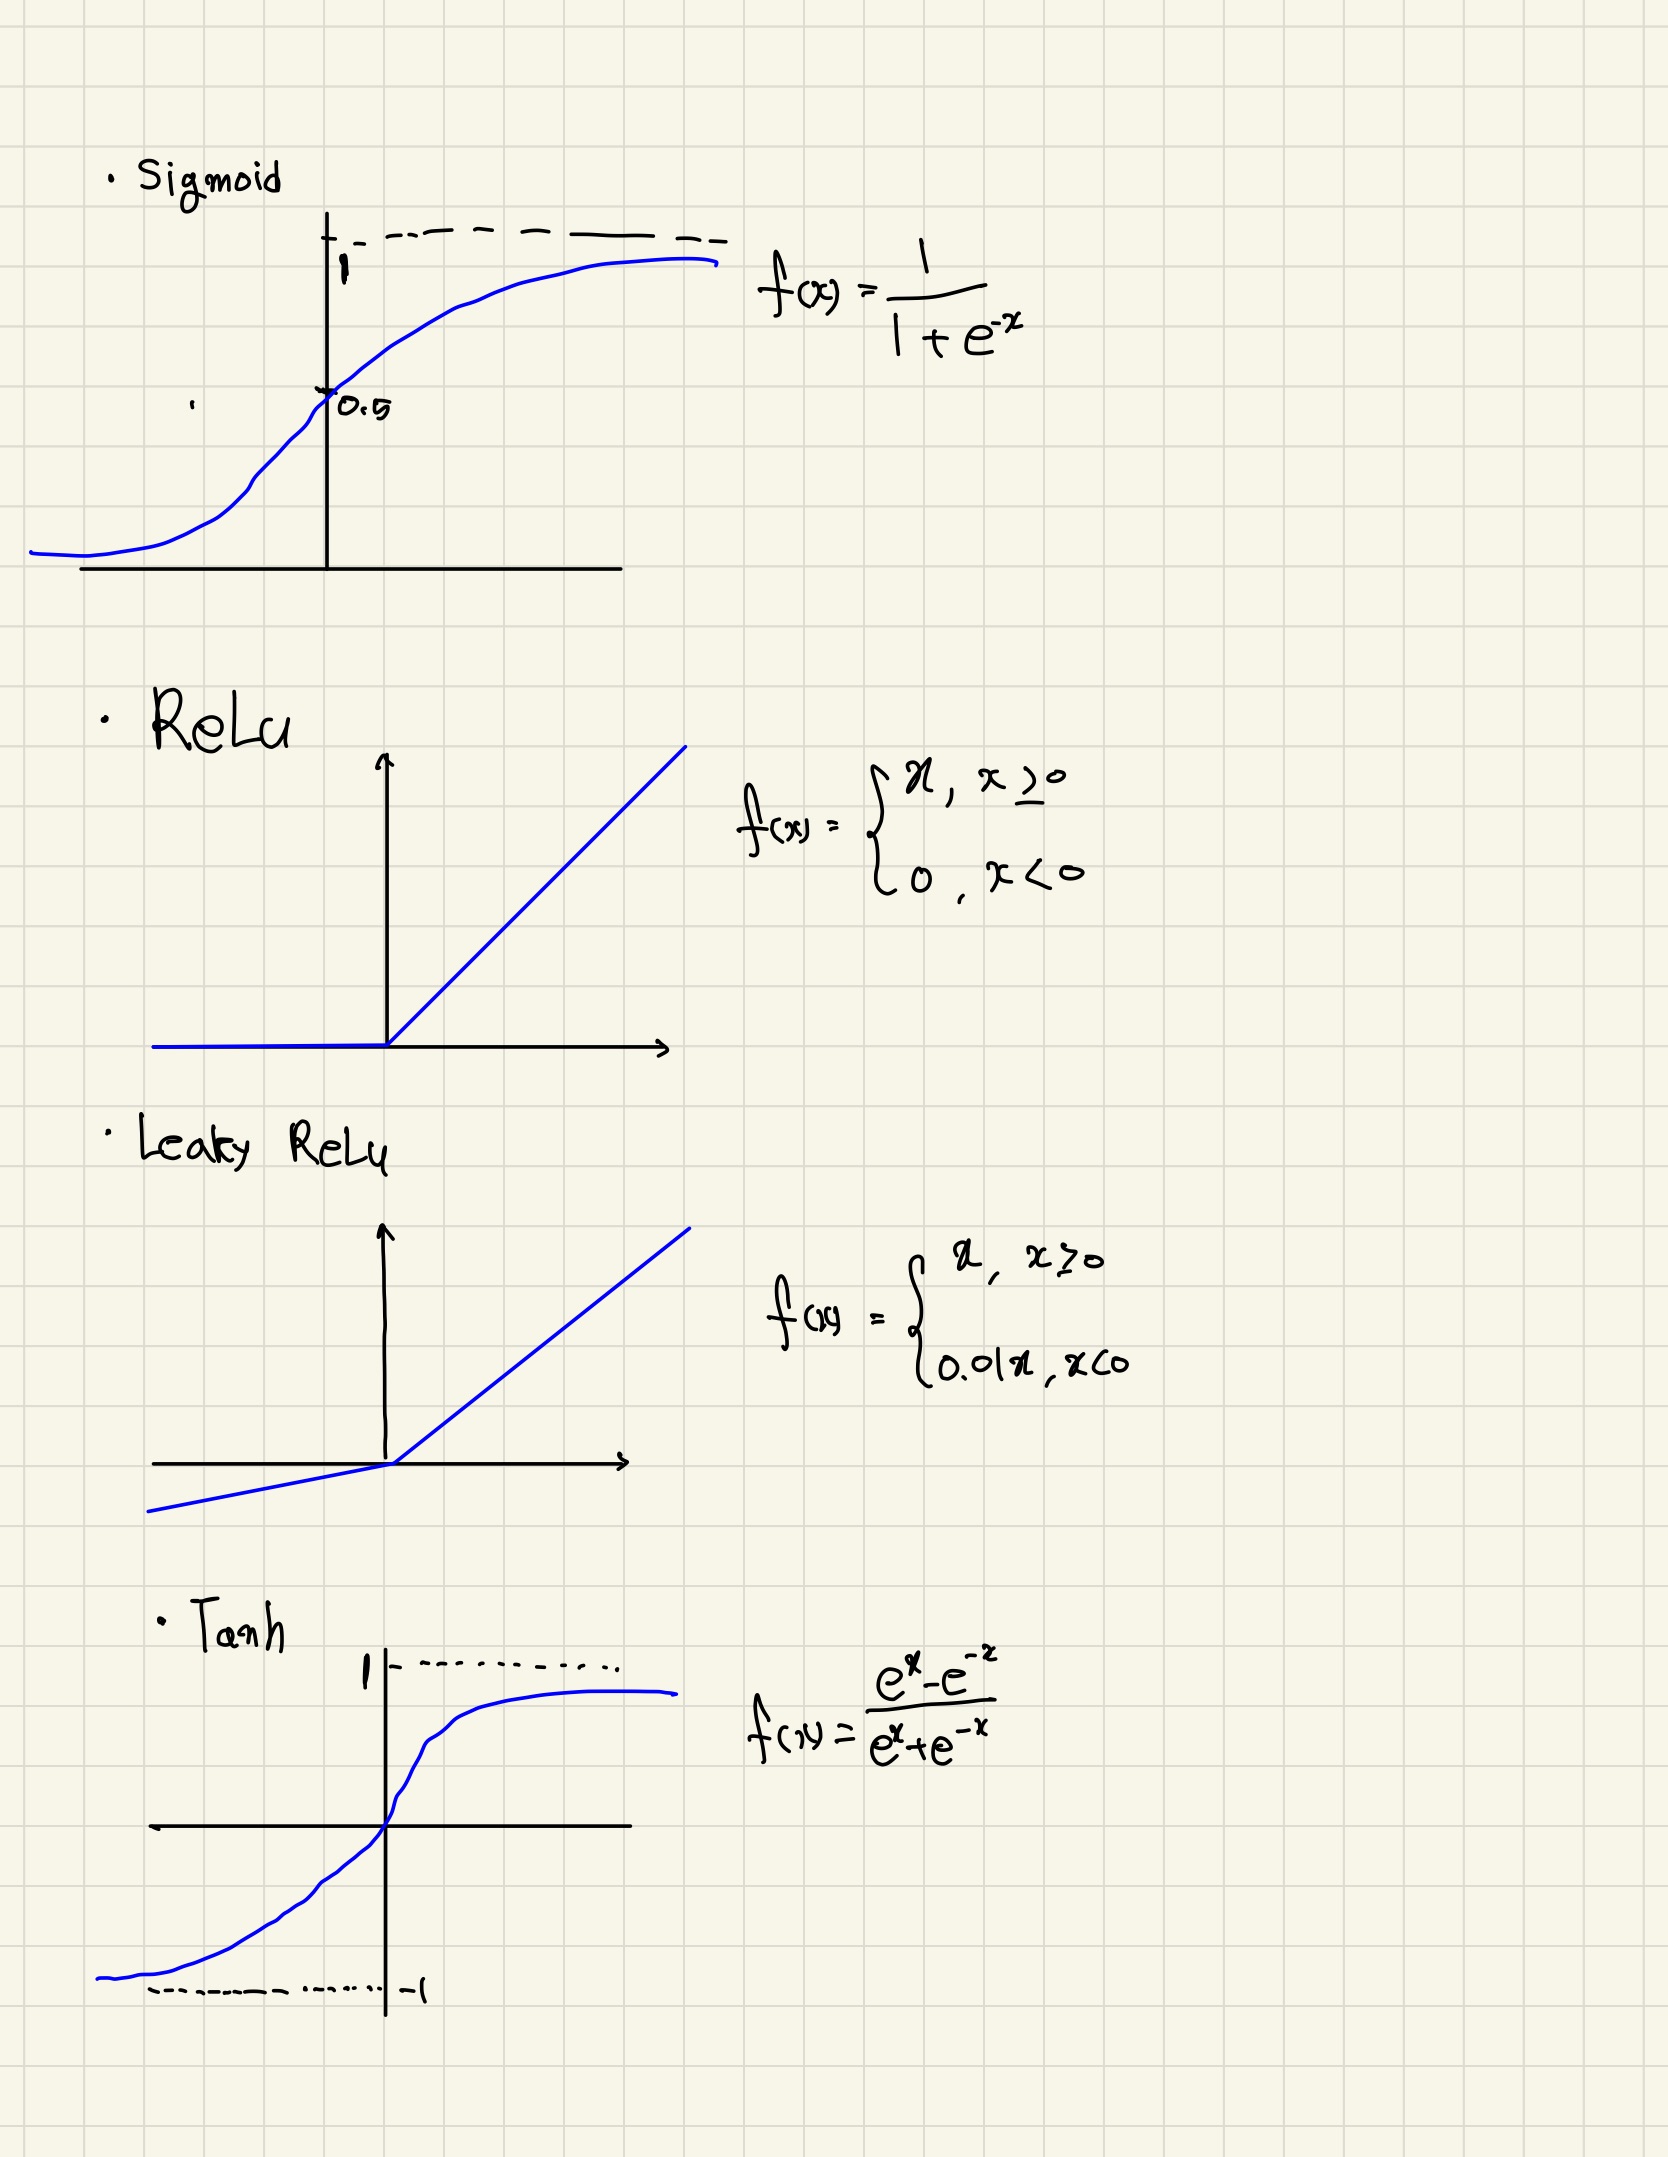 · Sigmoid
1
f(x) = 1 / (1 + e^-x)
0.5
· ReLu
f(x) = { x, x ≥ 0
0, x < 0
· Leaky ReLu
f(x) = { x, x ≥ 0
0.01x, x < 0
· Tanh
1
f(x) = (e^x - e^-x) / (e^x + e^-x)
-1